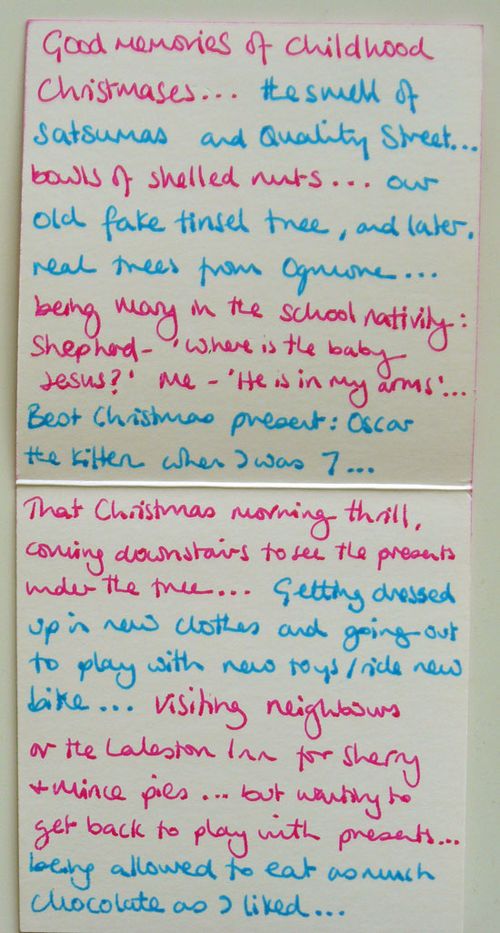 Good memories of childhood
Christmases... the smell of
satsumas and Quality Street...
bowls of shelled nuts... our
old fake tinsel tree, and later,
real trees from Ogmore...
being Mary in the school nativity:
Shepherd - 'Where is the baby
Jesus?' Me - 'He is in my arms'...
Best Christmas present: Oscar
the kitten when I was 7...
That Christmas morning thrill,
coming downstairs to see the presents
under the tree... Getting dressed
up in new clothes and going out
to play with new toys/ride new
bike... visiting neighbours
or the Laleston Inn for sherry
+ mince pies... but wanting to
get back to play with presents...
being allowed to eat as much
chocolate as I liked...